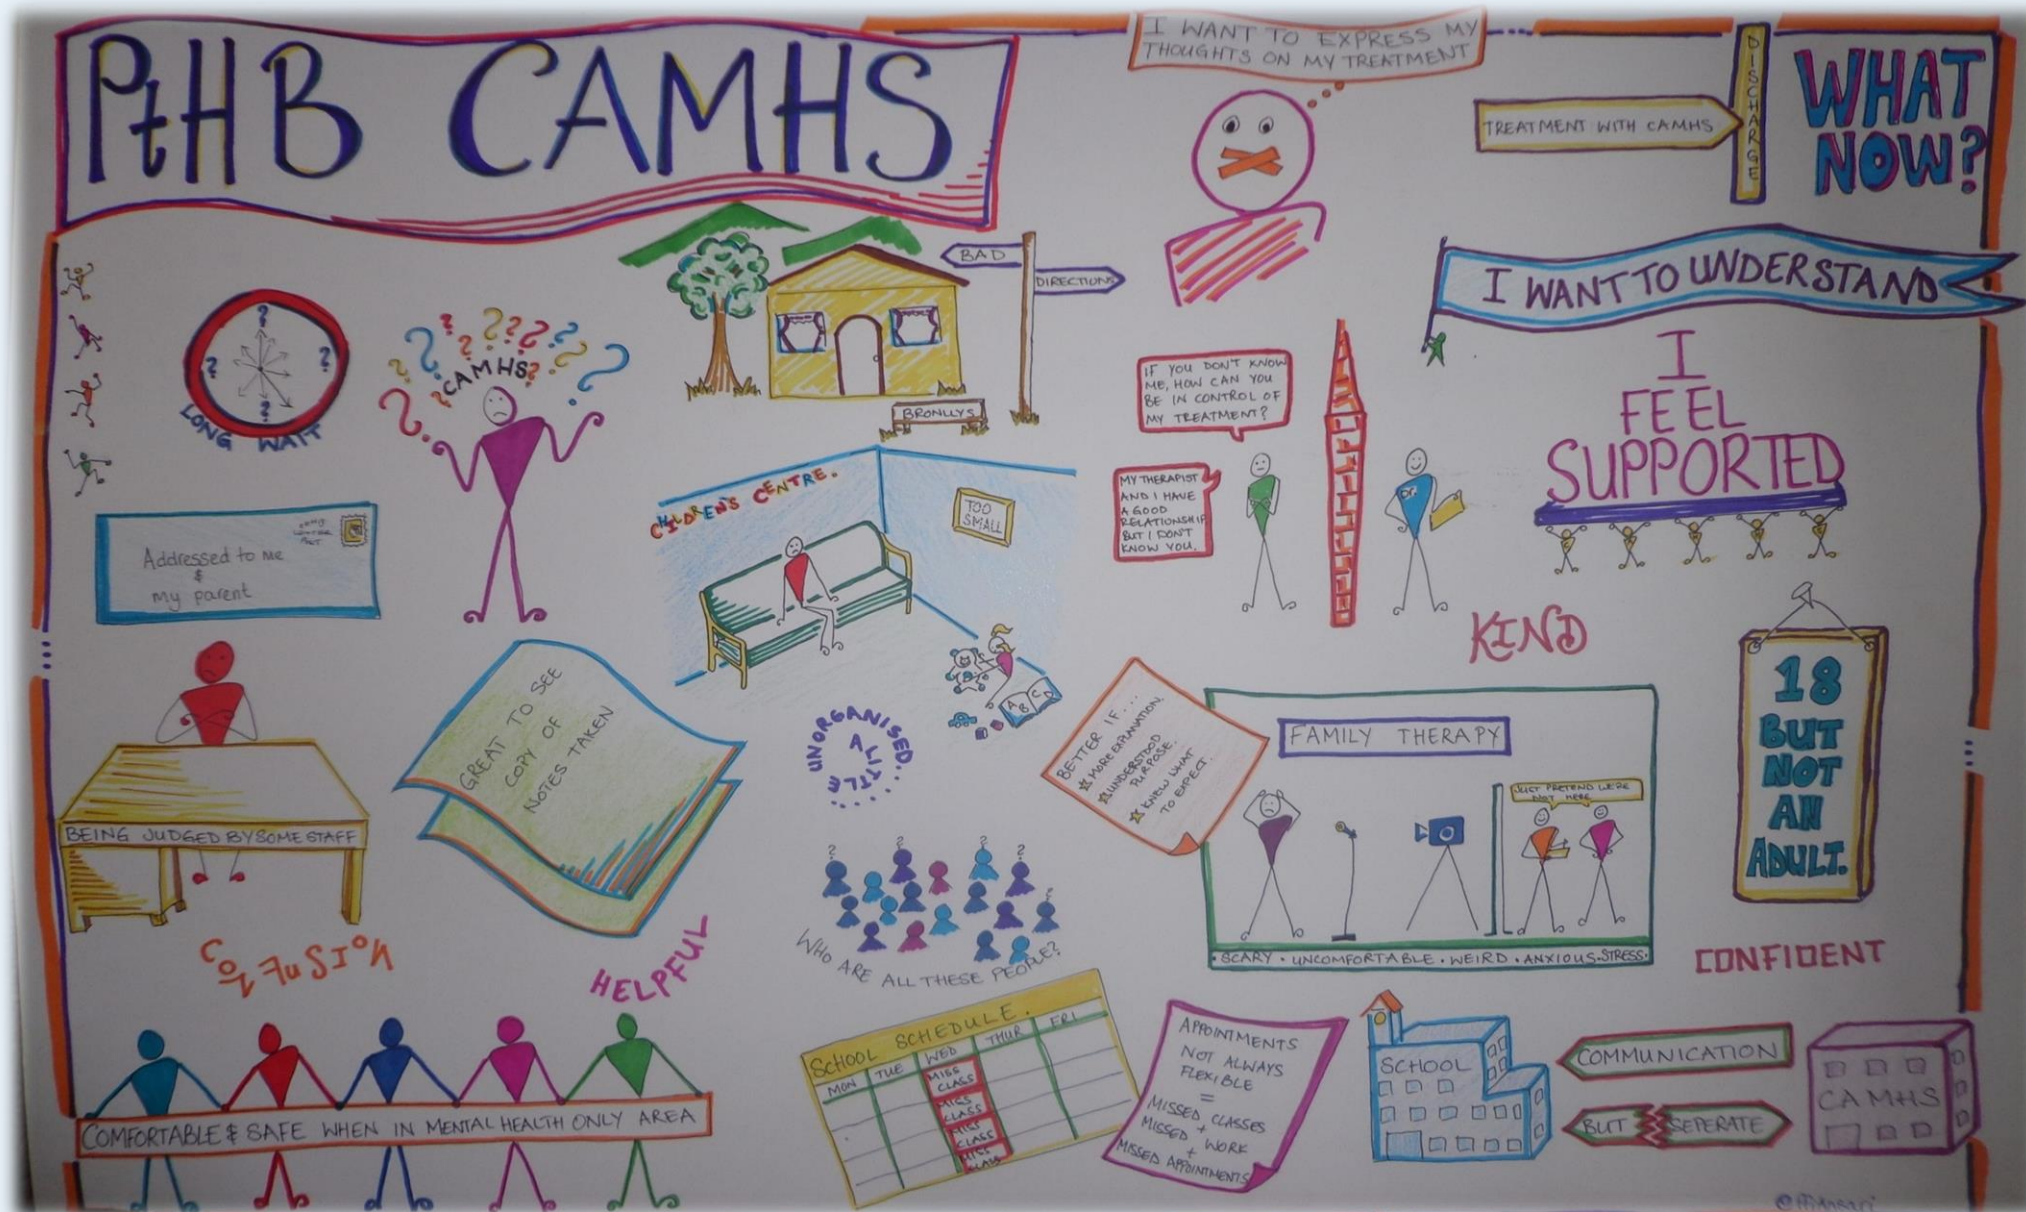 PtHB CAMHS
I WANT TO EXPRESS MY
THOUGHTS ON MY TREATMENT
TREATMENT WITH CAMHS
DISCHARGE
WHAT
NOW?
I WANT TO UNDERSTAND
BAD
DIRECTIONS
BRONLLYS
? ? ? ?
LONG WAIT
?CAMHS?
IF YOU DON'T KNOW
ME, HOW CAN YOU
BE IN CONTROL OF
MY TREATMENT?
MY THERAPIST
AND I HAVE
A GOOD
RELATIONSHIP
BUT I DON'T
KNOW YOU.
Dr.
I
FEEL
SUPPORTED
CHILDREN'S CENTRE.
TOO
SMALL
A B C D
Addressed to me
&
my parent
KIND
18
BUT
NOT
AN
ADULT.
BEING JUDGED BY SOME STAFF
GREAT TO SEE
COPY OF
NOTES TAKEN
A LITTLE UNORGANISED...
BETTER IF...
MORE EXPLANATION
UNDERSTOOD
PURPOSE.
KNEW WHAT
TO EXPECT.
FAMILY THERAPY
JUST PRETEND WERE
NOT HERE
• SCARY • UNCOMFORTABLE • WEIRD • ANXIOUS • STRESS •
CONFUSION
HELPFUL
? ? ? ? ?
WHO ARE ALL THESE PEOPLE?
CONFIDENT
COMFORTABLE & SAFE WHEN IN MENTAL HEALTH ONLY AREA
SCHOOL SCHEDULE.
MON TUE WED THUR FRI
MISS
CLASS
MISS
CLASS
MISS
CLASS
MISS
CLASS
APPOINTMENTS
NOT ALWAYS
FLEXIBLE
=
MISSED CLASSES
+
MISSED WORK
+
MISSED APPOINTMENTS
SCHOOL
COMMUNICATION
BUT SEPERATE
CAMHS